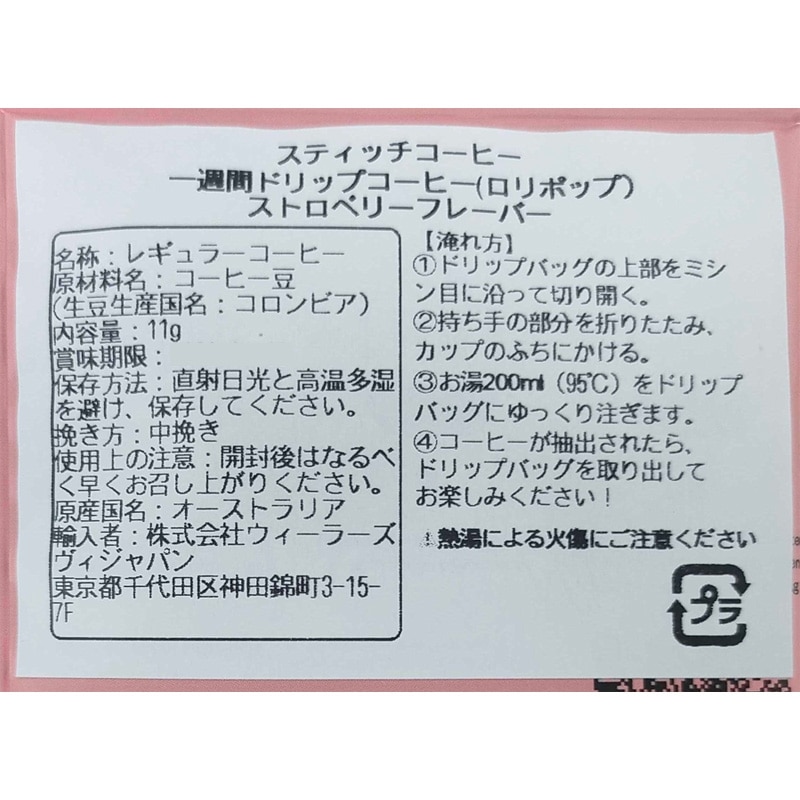 スティッチコーヒー
一週間ドリップコーヒー(ロリポップ)
ストロベリーフレーバー
名称：レギュラーコーヒー
原材料名：コーヒー豆
(生豆生産国名：コロンビア)
内容量：11g
賞味期限：
保存方法：直射日光と高温多湿
を避け、保存してください。
挽き方：中挽き
使用上の注意：開封後はなるべ
く早くお召し上がりください。
原産国名：オーストラリア
輸入者：株式会社ウィーラーズ
ヴィジャパン
東京都千代田区神田錦町3-15-
7F
【淹れ方】
①ドリップバッグの上部をミシ
ン目に沿って切り開く。
②持ち手の部分を折りたたみ、
カップのふちにかける。
③お湯200ml（95℃）をドリップ
バッグにゆっくり注ぎます。
④コーヒーが抽出されたら、
ドリップバッグを取り出して
お楽しみください！
⚠熱湯による火傷にご注意ください
プラ